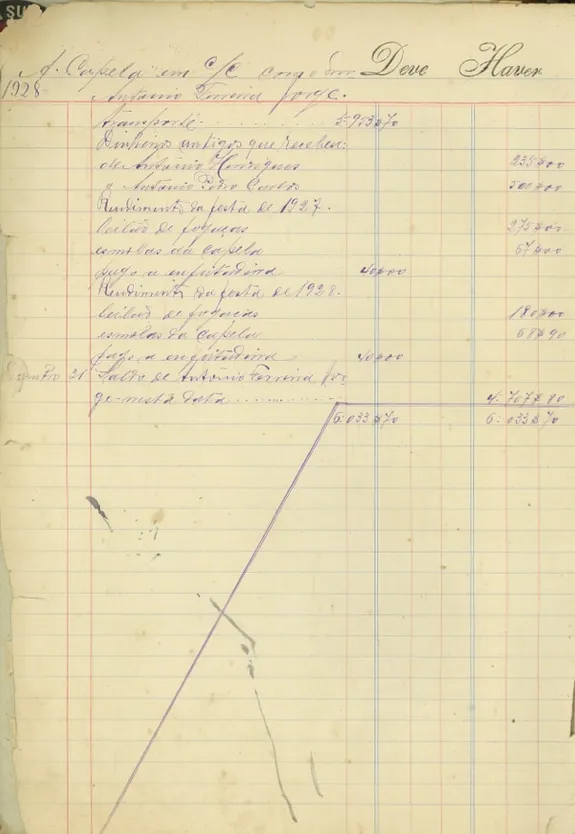 A Capela em C/C com o Snr. Deve Haver
1928 António Ferreira Jorge.
Transporte 5:953$70
Dinheiros antigos que recebeu:
de António Henriques 235$00
" António Pedro Carlos 500$00
Rendimento da festa de 1927.
leilão de fogaças 275$00
esmolas da capela 67$00
pago a enfeitadeira 40$00
Rendimento da festa de 1928.
leilão de fogaças 180$00
esmolas da capela 68$90
pago a enfeitadeira 40$00
21 Saldo de António Ferreira Jor
ge nesta data 4:707$80
6:033$70 6:033$70